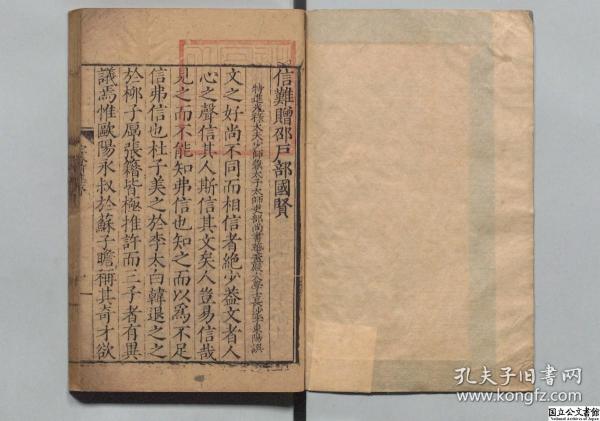 信難贈邵戶部國賢
特進光祿大夫少師兼太子太師吏部尚書華蓋殿大學士長沙李東陽譔
文之好尚不同而相信者絶少葢文者人
心之聲信其人斯信其文矣人豈易信哉
見之而不能知弗信也知之而以爲不足
信弗信也杜子美之於李太白韓退之之
於柳子厚張籍皆極推許而三子者有異
議焉惟歐陽永叔於蘇子瞻一稱其奇才欲
孔夫子旧书网
www.kongfz.com
国立公文書館
National Archives of Japan